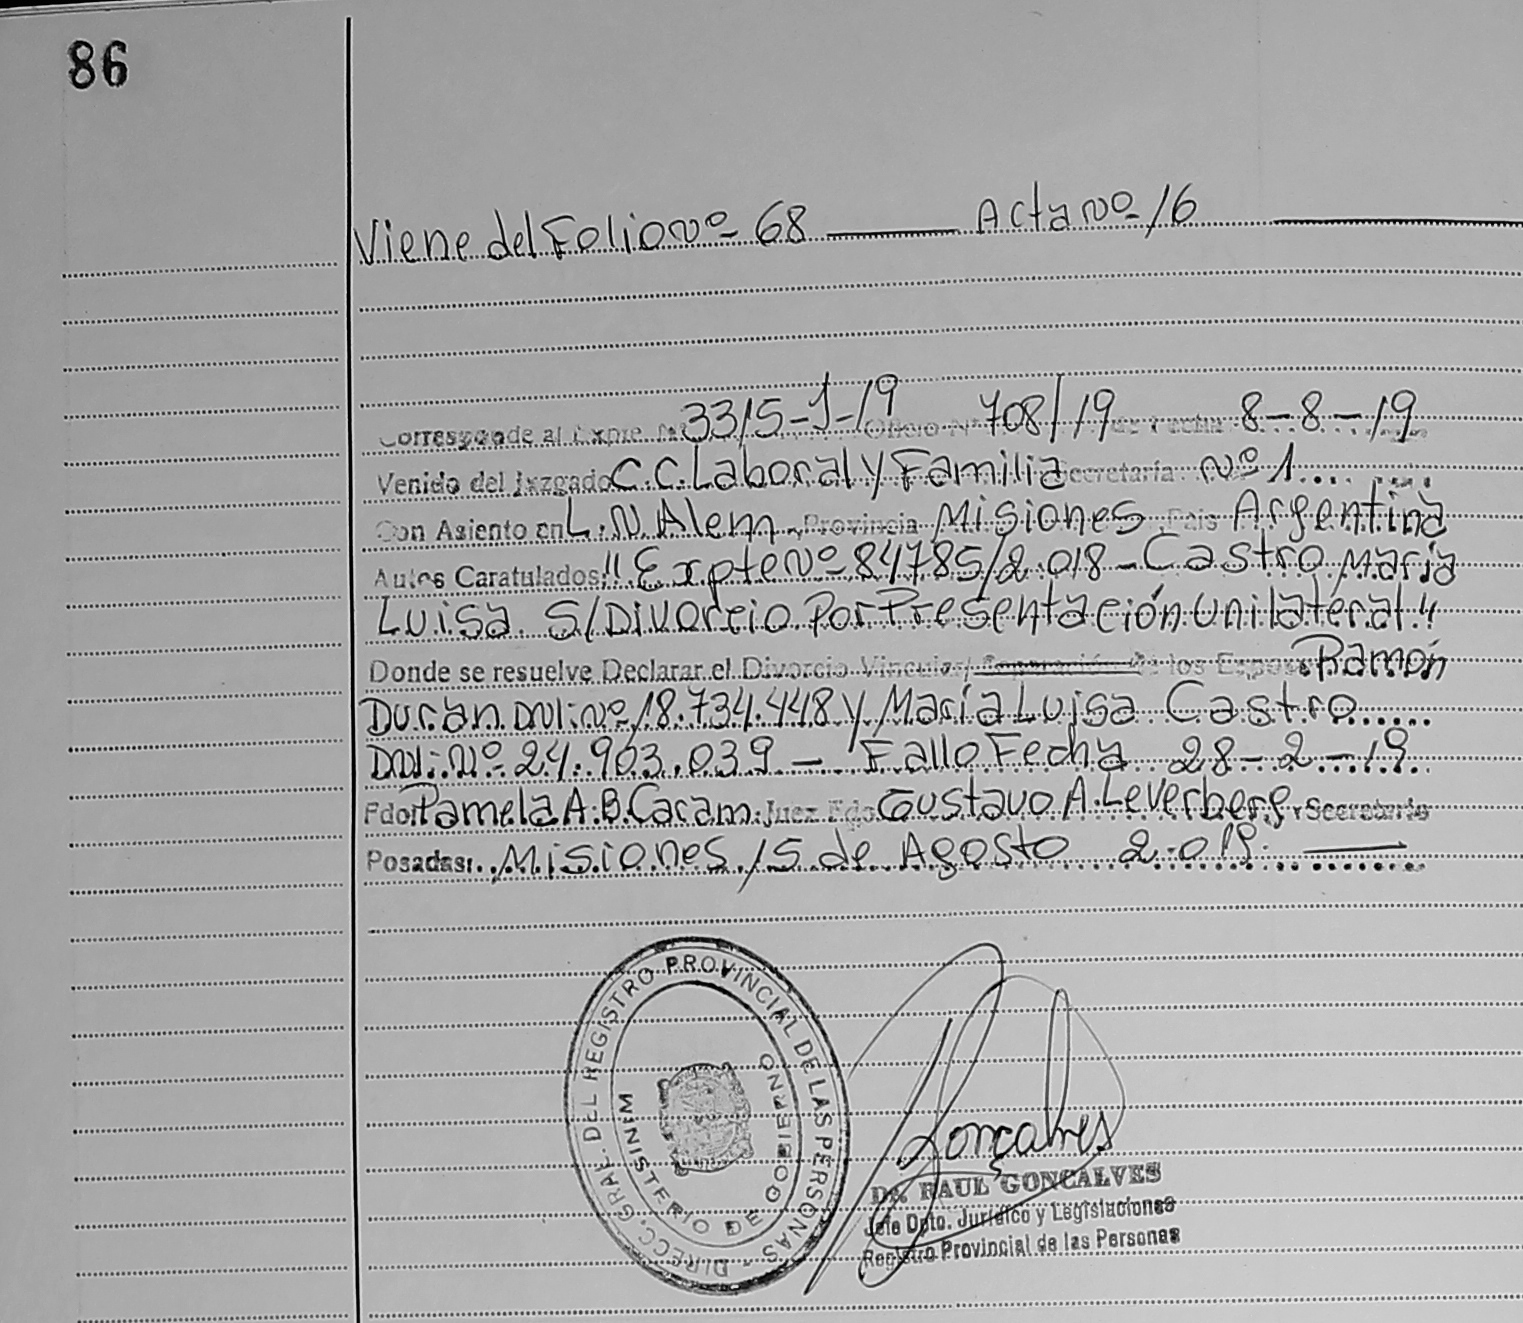 86
Viene del Folio Nº 68 Acta Nº 16
Corresponde al Expte. Nº 3315-J-19 Oficio Nº 708/19 de Fecha 8-8-19
Venido del Juzgado C.C. Laboral y Familia Secretaría Nº 1
Con Asiento en L.N. Alem Provincia Misiones País Argentina
Autos Caratulados "Expte Nº 84785/2.018 - Castro María
Luisa S/ Divorcio Por Presentación Unilateral"
Donde se resuelve Declarar el Divorcio Vincular/ Separación de los Esposos Ramón
Duran DNI: Nº 18.734.448 y María Luisa Castro
DNI: Nº 24.903.039 - Fallo Fecha 28-2-19
Fdo: Pamela A.B. Cacam: Juez Fdo Gustavo A. Leverberg Secretario
Posadas: Misiones 15 de Agosto 2.019
DIRECC. GRAL. DEL REGISTRO PROVINCIAL DE LAS PERSONAS
MINISTERIO DE GOBIERNO
Gonçalves
Dr. RAUL GONCALVES
Jefe Dpto. Jurídico y Legislaciones
Registro Provincial de las Personas